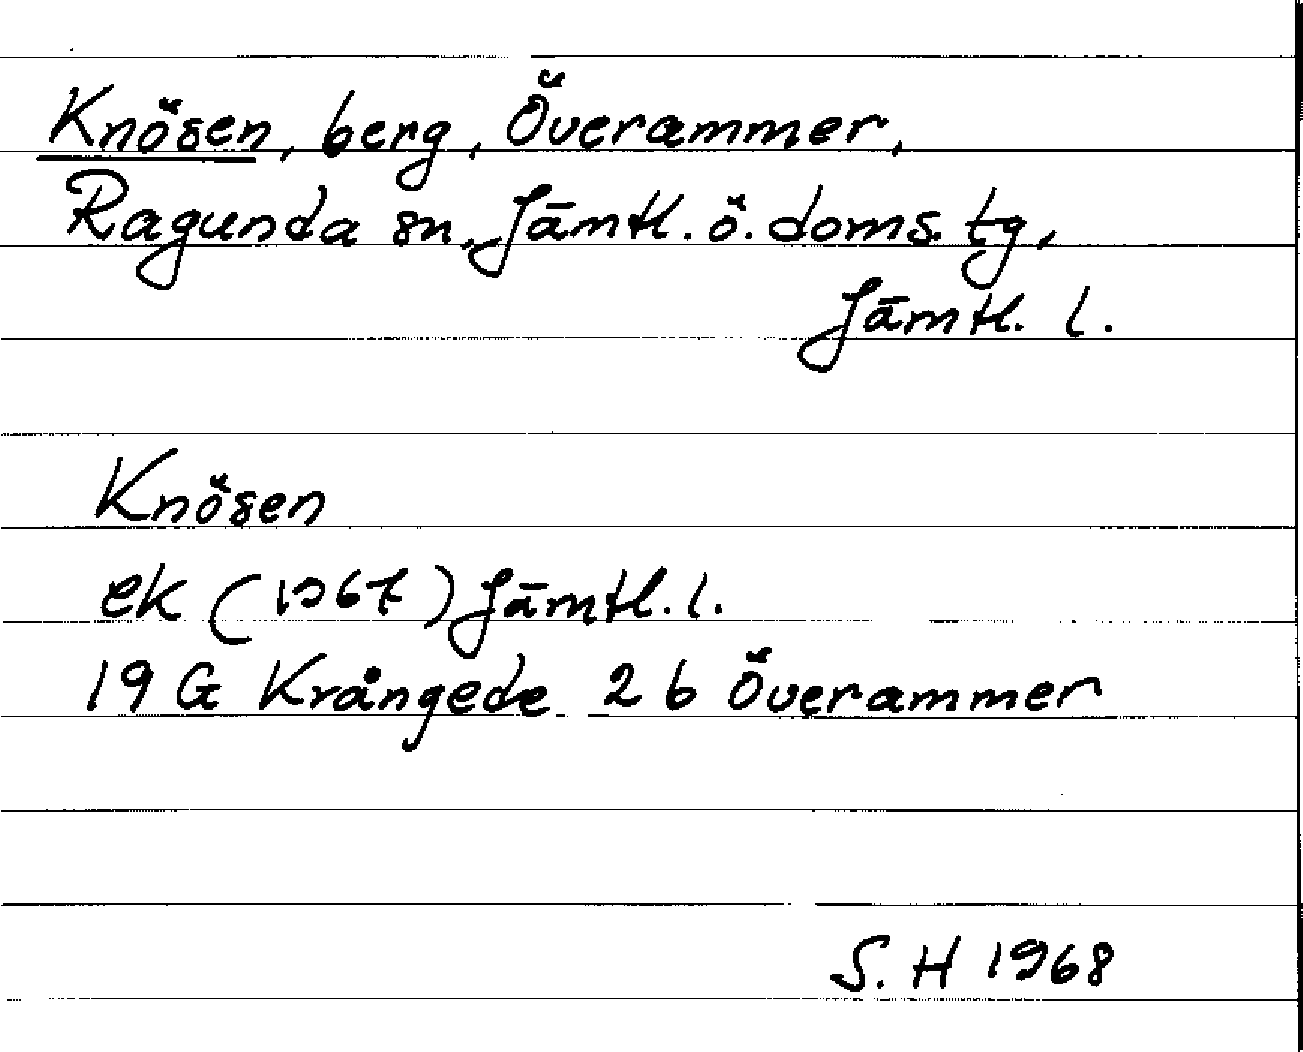 Knösen, berg, Överammer,
Ragunda sn, Jämtl. ö. doms. tg,
Jämtl. l.
Knösen
ek (1967) Jämtl. l.
19 G Krångede 2 b Överammer
S. H 1968